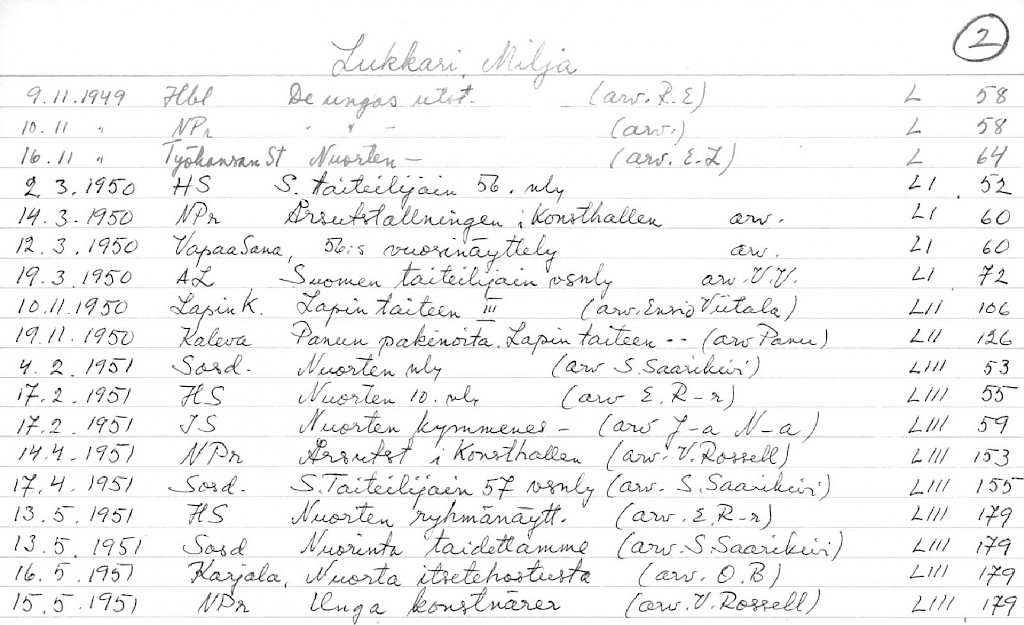 2
Lukkari, Milja
9.11.1949 Hbl De ungas utst. (arv. R.E) L 58
10.11 " NPr " " - (arv.) L 58
16.11 " Työkansan St Nuorten - (arv. E.L) L 64
2.3.1950 HS S. taiteilijain 56. nly LI 52
14.3.1950 NPr Årsutställningen i Konsthallen arv. LI 60
12.3.1950 Vapaa Sana, 56:s vuosinäyttely arv. LI 60
19.3.1950 AL Suomen taiteilijain vsnly arv. V.V. LI 72
10.11.1950 Lapin K. Lapin taiteen III (arv. Ensio Viitala) LII 106
19.11.1950 Kaleva Panun pakinoita. Lapin taiteen -- (arv Panu) LII 126
4.2.1951 Sosd. Nuorten nly (arv S. Saarikivi) LIII 53
17.2.1951 HS Nuorten 10. nly (arv E. R-r) LIII 55
17.2.1951 IS Nuorten kymmenes - (arv J-a N-a) LIII 59
14.4.1951 NPr Årsutst i Konsthallen (arv. V. Rossell) LIII 153
17.4.1951 Sosd. S. Taiteilijain 57 vsnly (arv. S. Saarikivi) LIII 155
13.5.1951 HS Nuorten ryhmänäytt. (arv. E. R-r) LIII 179
13.5.1951 Sosd Nuorinta taidettamme (arv. S. Saarikivi) LIII 179
16.5.1951 Karjala, Nuorta itsetehostusta (arv. O.B) LIII 179
15.5.1951 NPr Unga konstnärer (arv. V. Rossell) LIII 179